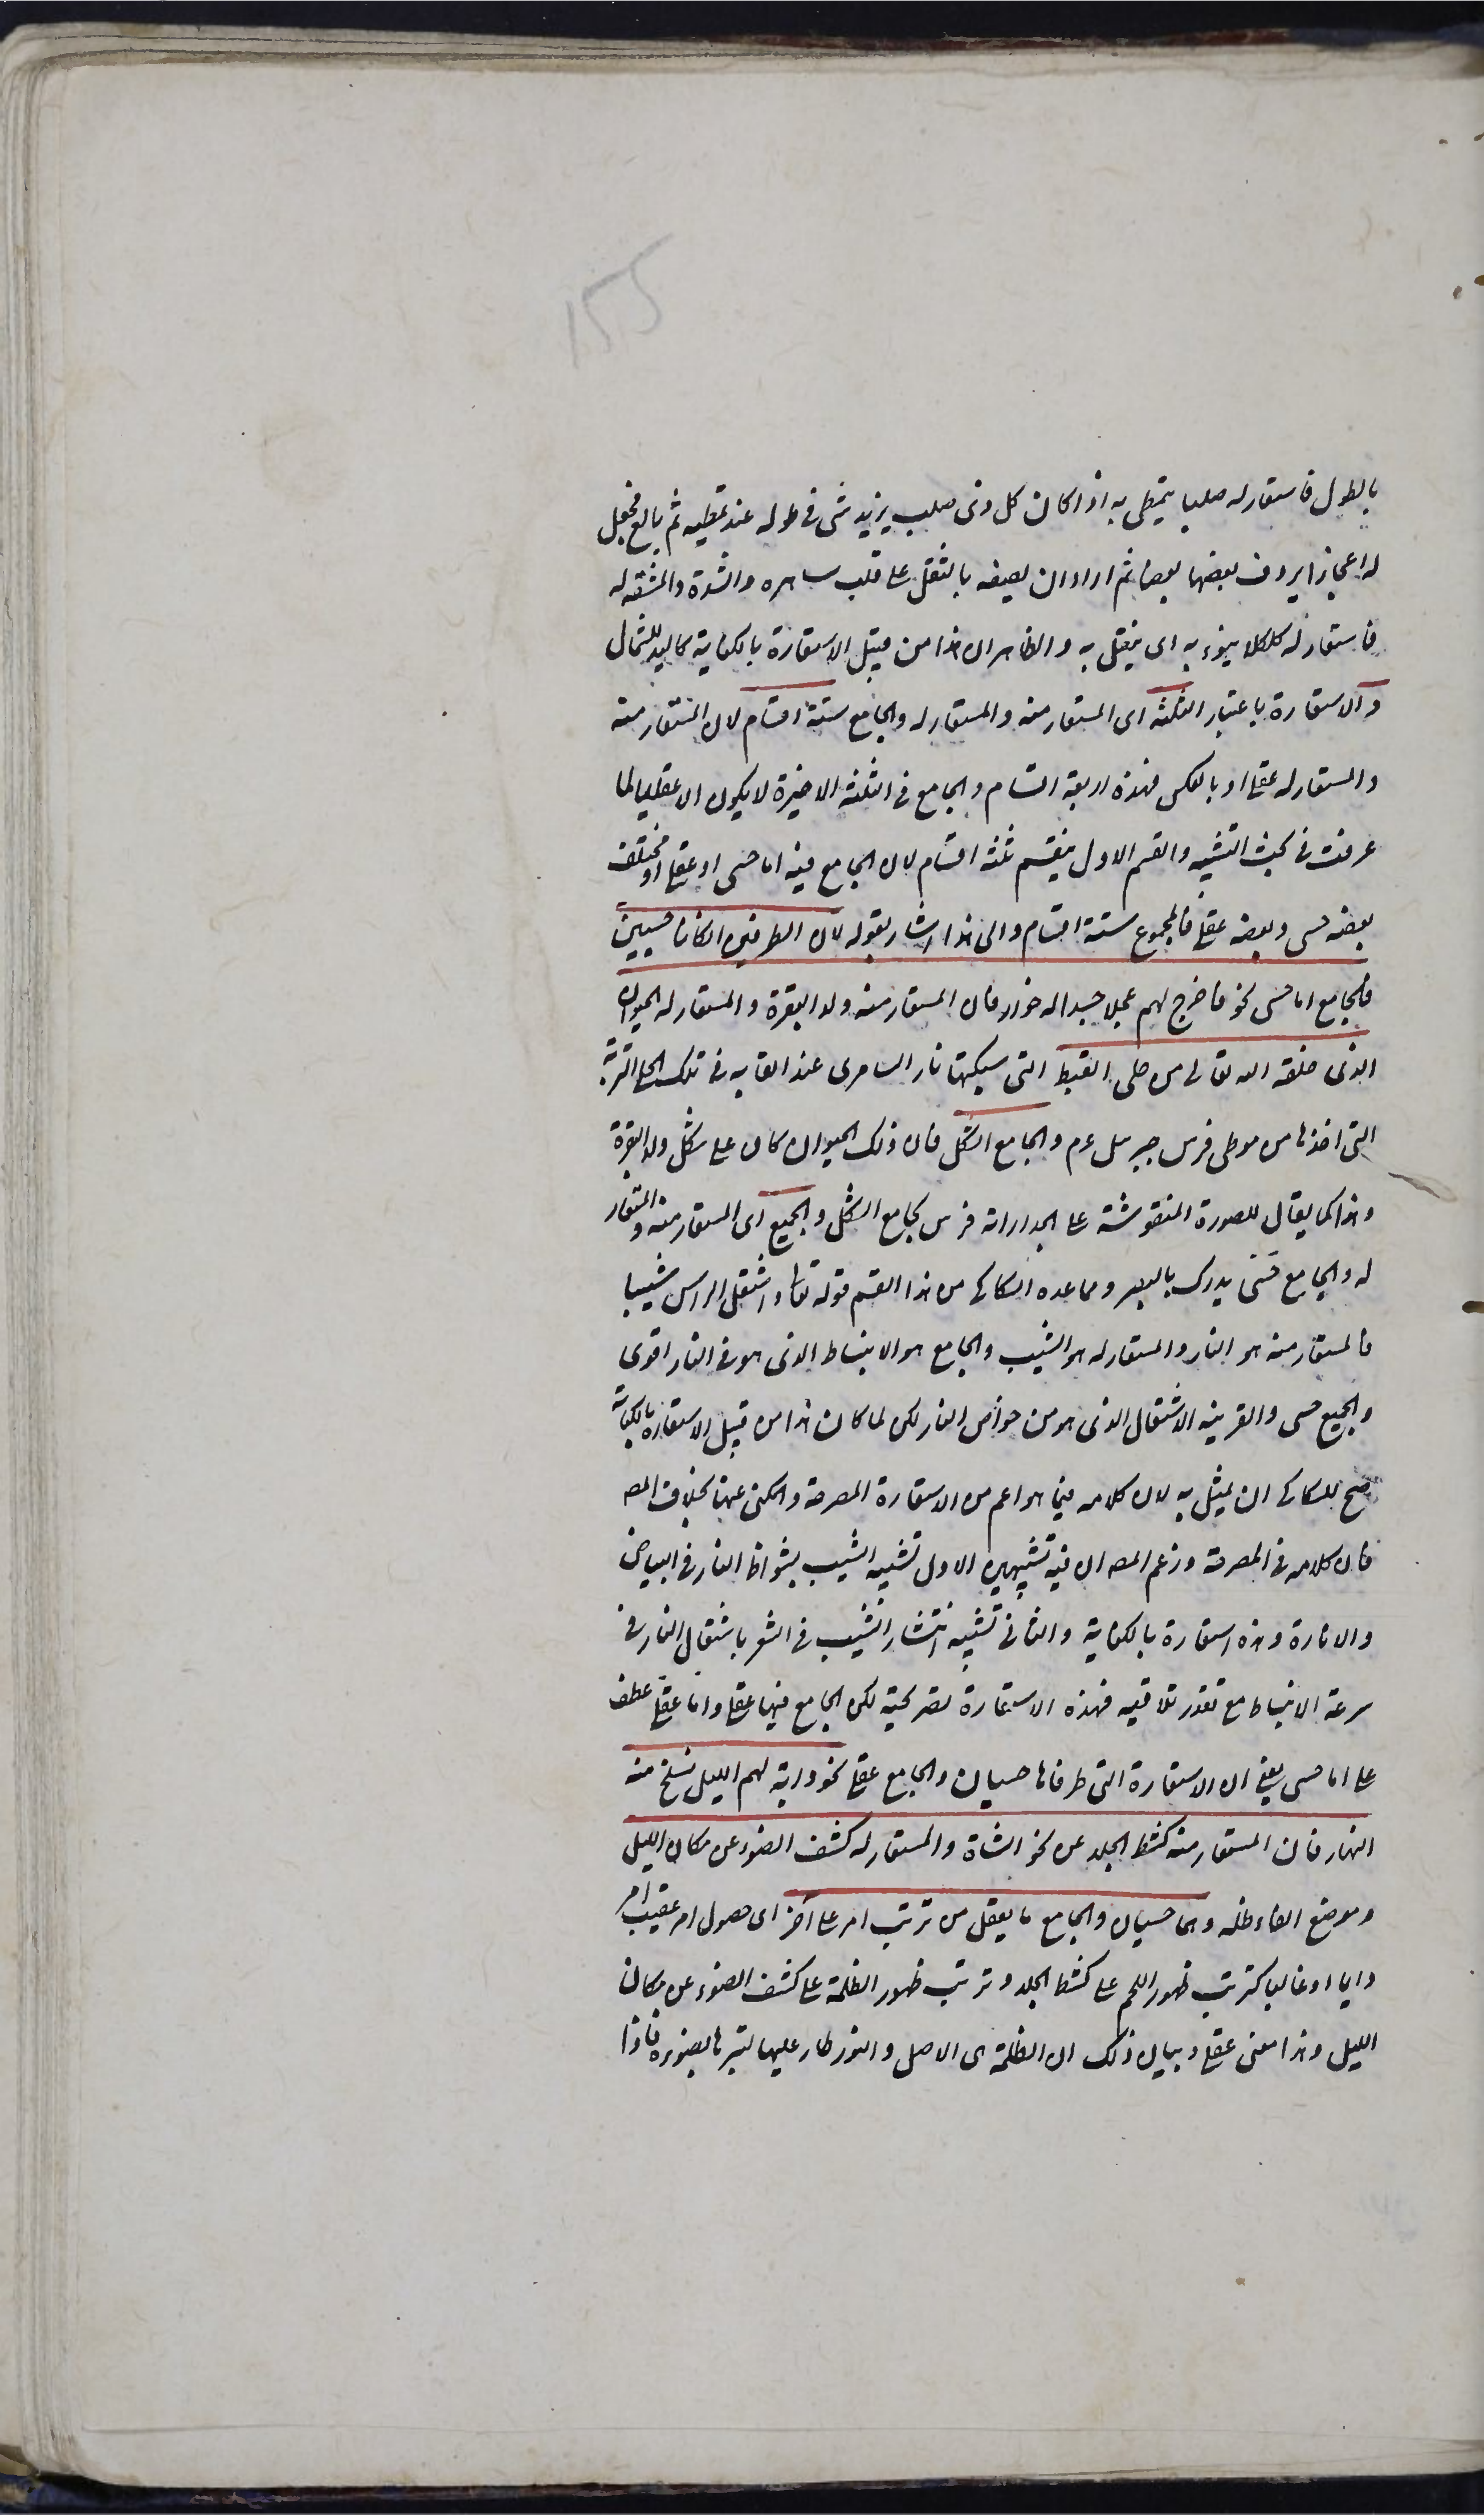 ١٥٥
بالطول فاستعار له صلبا يتمطى به اذا كان كل ذى صلب يزيد شئ فى طوله عند تمطيه ثم بالغ فجعل
له اعجازا يردف بعضها بعضا ثم اراد ان يصفه بالثقل على قلب ساهره والشدة والمشقة له
فاستعار له كلكلا ينوء به اى يثقل به والظاهر ان هذا من قبيل الاستعارة بالكناية كاليد للشمال
والاستعارة باعتبار الثلثة اى المستعار منه والمستعار له والجامع ستة اقسام لان المستعار منه
والمستعار له عقلى او بالعكس فهذه اربعة اقسام والجامع فى الثلثة الاخيرة لا يكون الا عقليا لما
عرفت فى بحث التشبيه والقسم الاول ينقسم ثلثة اقسام لان الجامع فيه اما حسى او عقلى او مختلف
بعضه حسى وبعضه عقلى فالمجموع ستة اقسام والى هذا اشار بقوله لان الطرفين ان كانا حسيين
فالجامع اما حسى نحو فاخرج لهم عجلا جسدا له خوار فان المستعار منه ولد البقرة والمستعار له الحيوان
الذى خلقه الله تعالى من حلى القبط التى سبكتها نار السامرى عند القائه فى تلك الحلى التربة
التى اخذها من موطى فرس جبرئيل عم والجامع الشكل فان ذلك الحيوان كان على شكل ولد البقرة
وهذا كما يقال للصورة المنقوشة على الجدار انه فرس بجامع الشكل والجميع اى المستعار منه والمستعار
له والجامع حسى يدرك بالبصر ومما عده السكاكى من هذا القسم قوله تعا واشتعل الراس شيبا
فالمستعار منه هو النار والمستعار له هو الشيب والجامع هو الانبساط الذى هو فى النار اقوى
والجميع حسى والقرينه الاشتعال الذى هو من خواص النار لكن لما كان هذا من قبيل الاستعارة بالكناية
صح للسكاكى ان يمثل به لان كلامه فيما هو اعم من الاستعارة المصرحة والمكنى عنها بخلاف المصه
فان كلامه فى المصرحة وزعم المصه ان فيه تشبيهين الاول تشبيه الشيب بشواظ النار فى البياض
والانارة وهذه استعارة بالكناية والثانى تشبيه انتشار الشيب فى الشعر باشتعال النار فى
سرعة الانبساط مع تعذر تلافيه فهذه الاستعارة تصريحية لكن الجامع فيها عقلى واما عقلى عطف
على اما حسى يعنى ان الاستعارة التى طرفاها حسيان والجامع عقلى نحو واية لهم الليل نسلخ منه
النهار فان المستعار منه كشط الجلد عن نحو الشاة والمستعار له كشف الضوء عن مكان الليل
وموضع القاء ظله وهما حسيان والجامع ما يعقل من ترتب امر على آخر اى حصول امر عقيب امر
دايما او غالبا كترتب ظهور اللحم على كشط الجلد وترتب ظهور الظلمة على كشف الضوء عن مكان
الليل وهذا معنى عقلى وبيان ذلك ان الظلمة هى الاصل والنور طار عليها يسترها بضوءه فاذا